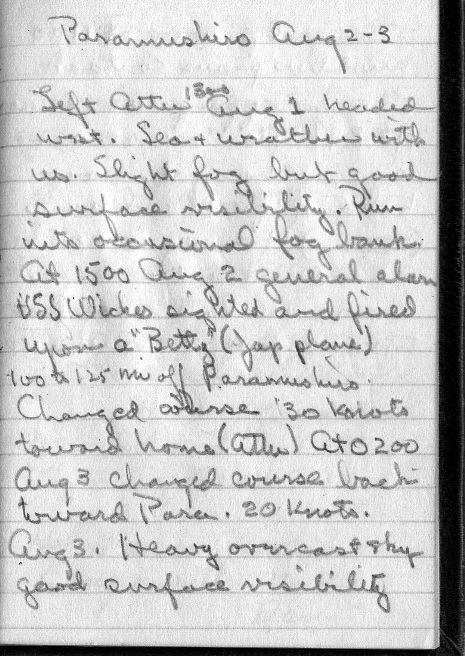 Paramushiro Aug 2-3
Left Attu 1300 Aug 1 headed
west. Sea + weather with
us. Slight fog but good
surface visibility. Run
into occasional fog bank.
At 1500 Aug 2 general alarm
USS Wickes sighted and fired
upon a "Betty" (Jap plane)
100 to 125 mi off Paramushiro.
Changed course 30 knots
toward home (Attu) At 0200
Aug 3 changed course back
toward Para. 20 Knots.
Aug 3. Heavy overcast sky
good surface visibility